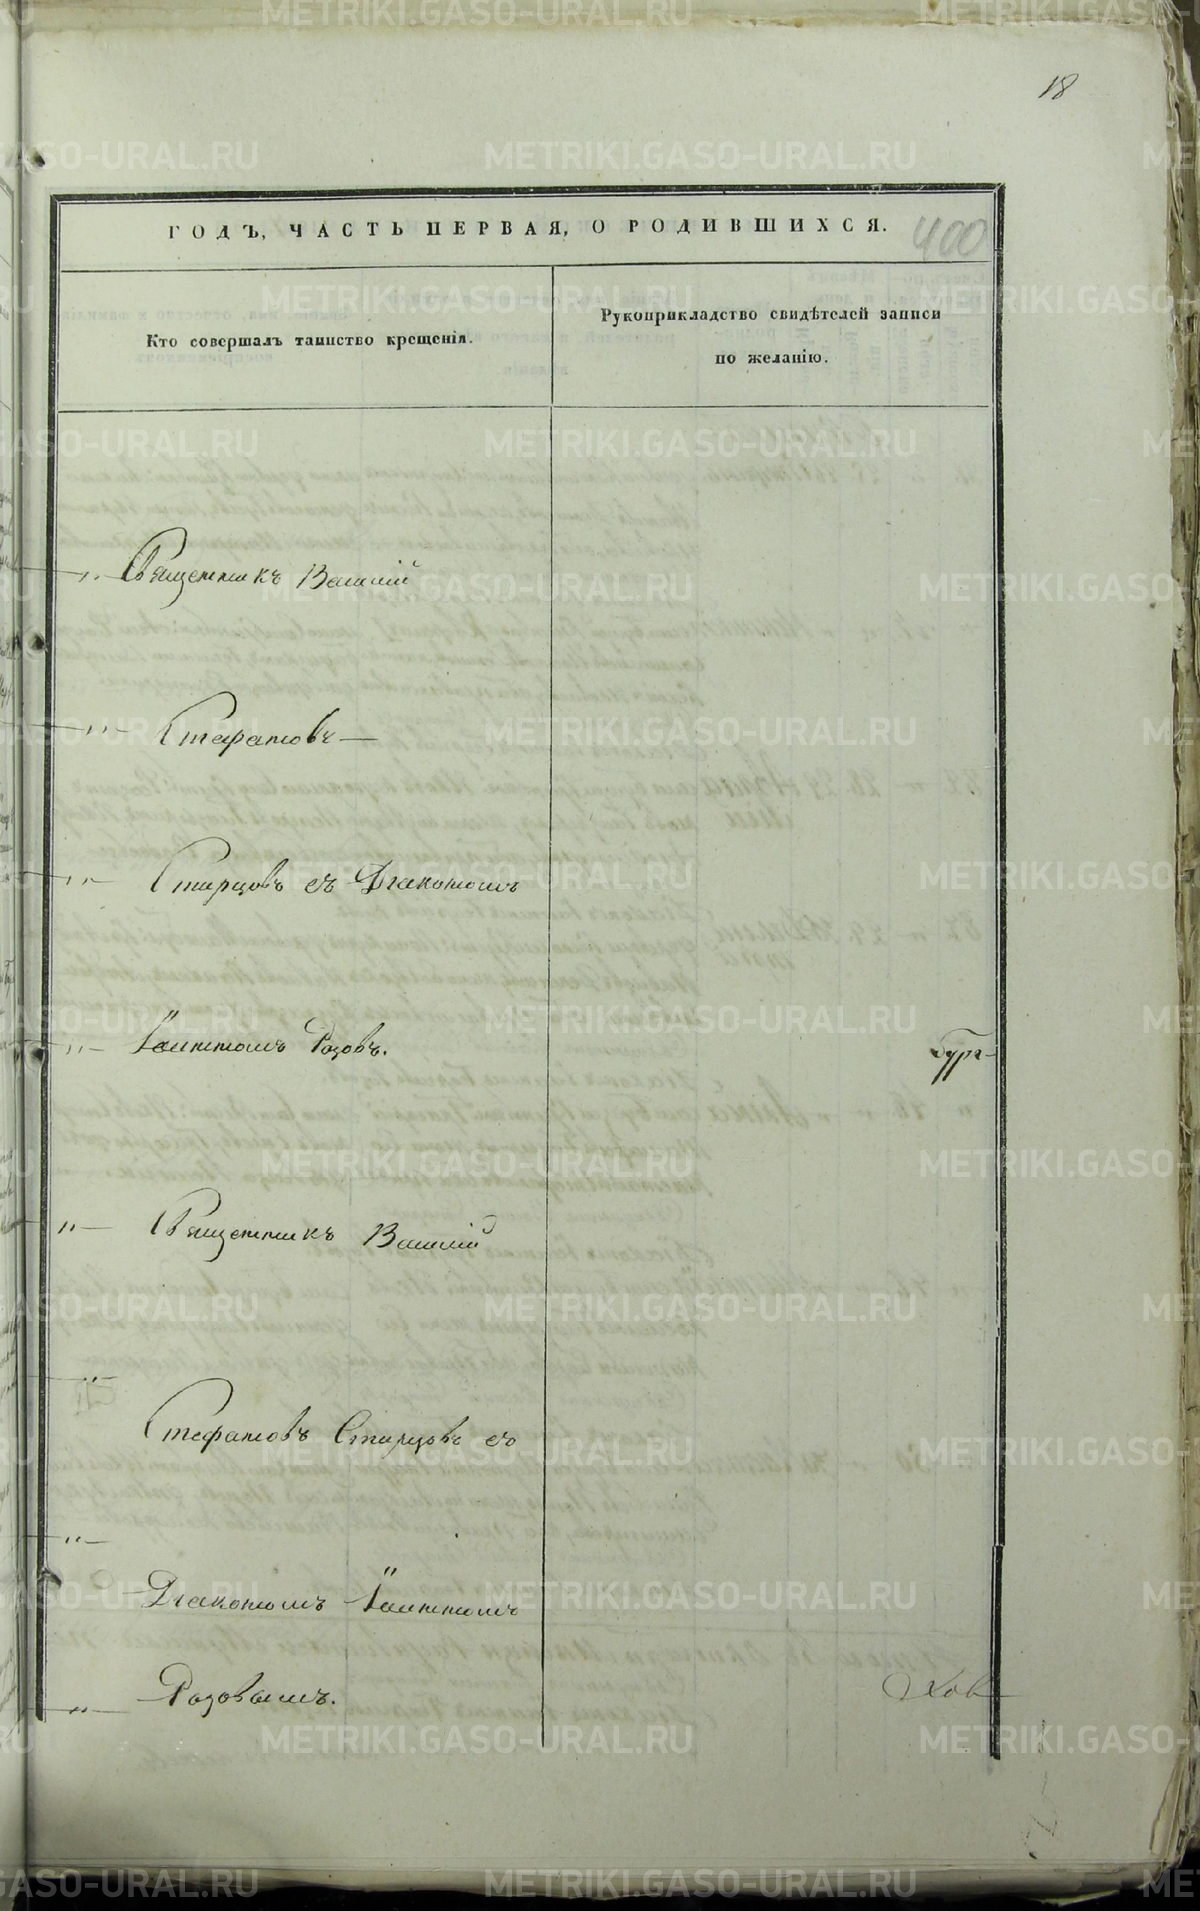 18
ГОДЪ, ЧАСТЬ ПЕРВАЯ, О РОДИВШИХСЯ.
400
Кто совершалъ таинство крещенія.
Рукоприкладство свидѣтелей записи
по желанію.
Священникъ Василій
Стефановъ
Старцовъ съ Діакономъ
Іоанномъ Розовъ.
Священникъ Василій
Стефановъ Старцовъ съ
Діакономъ Іоанномъ
Розовымъ.
METRIKI.GASO-URAL.RU